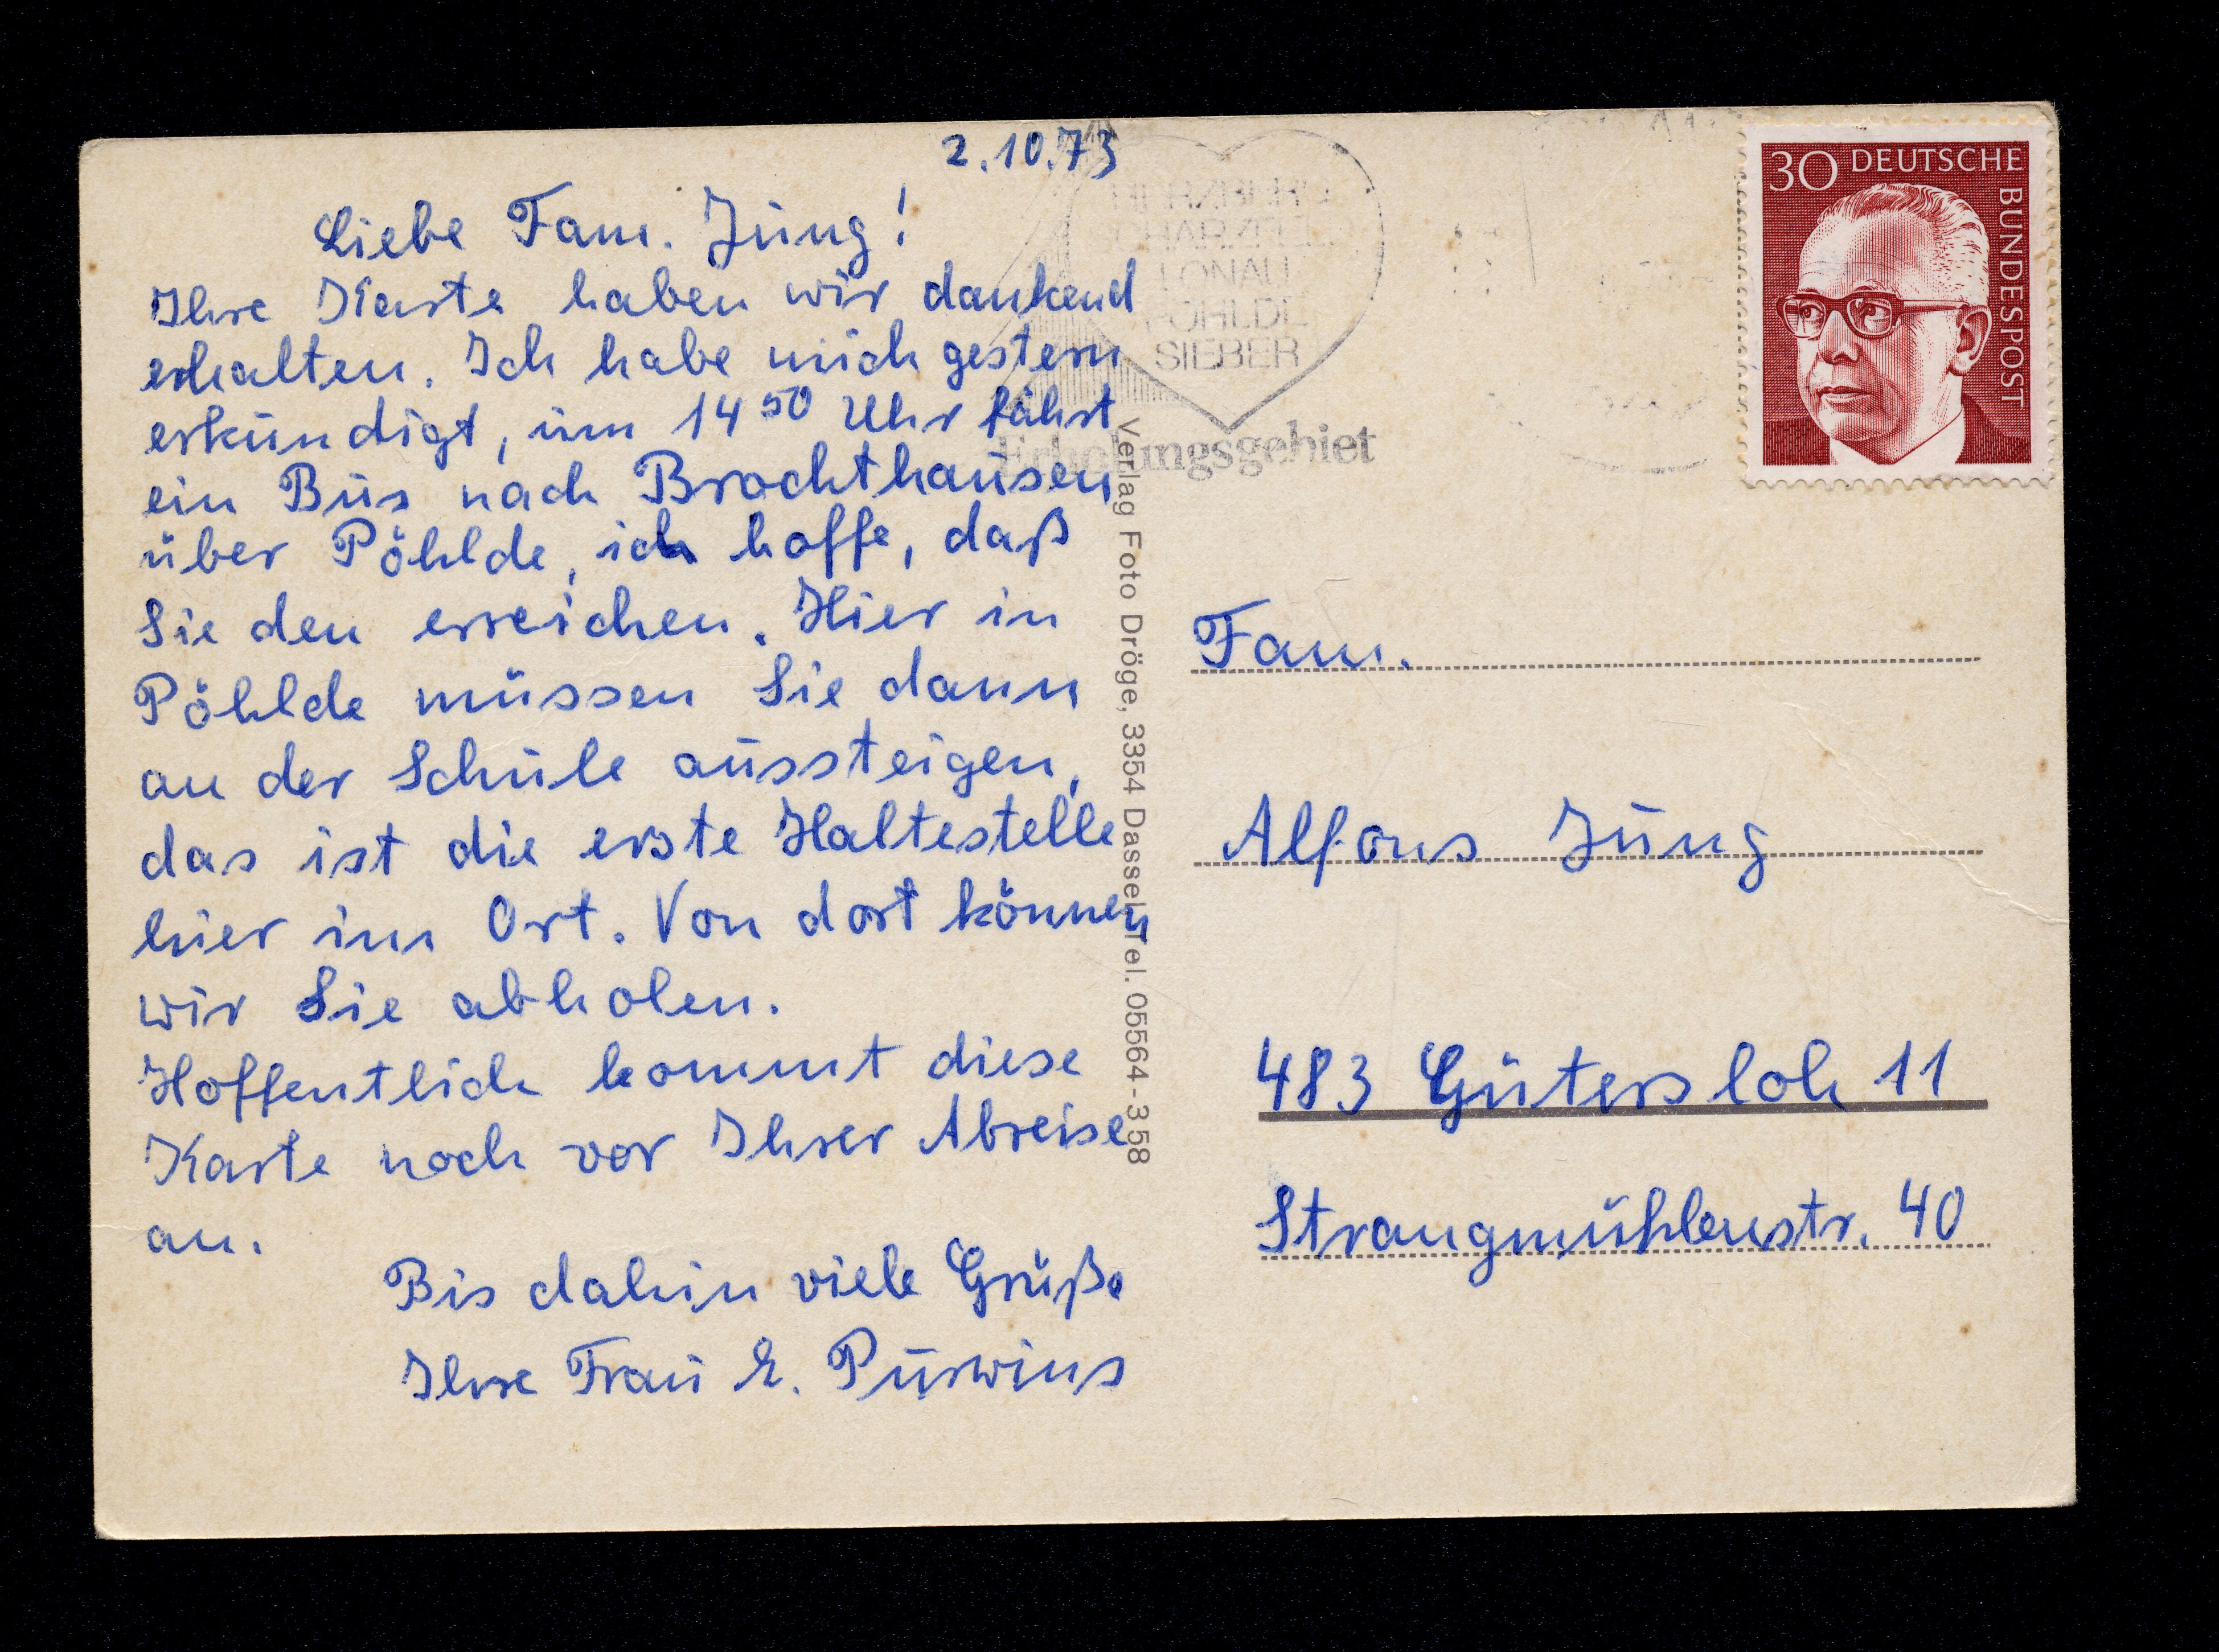 2.10.73
Liebe Fam. Jung!
Ihre Karte haben wir dankend
erhalten. Ich habe mich gestern
erkundigt, um 14 50 Uhr fährt
ein Bus nach Brochthausen
über Pöhlde, ich hoffe, daß
Sie den erreichen. Hier in
Pöhlde müssen Sie dann
an der Schule aussteigen,
das ist die erste Haltestelle
hier im Ort. Von dort können
wir Sie abholen.
Hoffentlich kommt diese
Karte noch vor Ihrer Abreise
an.
Bis dahin viele Grüße
Ihre Frau E. Purwins
LONAU
PÖHLDE
SIEBER
Erholungsgebiet
Verlag Foto Dröge, 3354 Dassel, Tel. 05564-358
30 DEUTSCHE
BUNDESPOST
Fam.
Alfons Jung
483 Gütersloh 11
Strangmühlenstr. 40